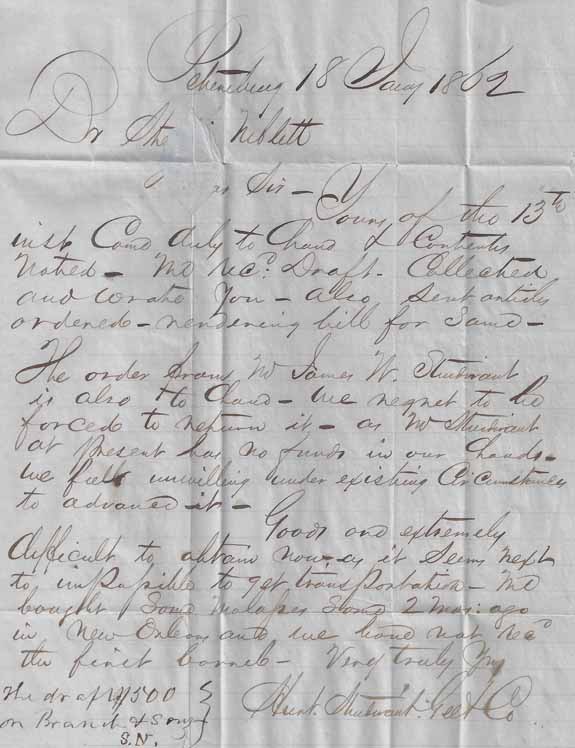 Petersburg 18 Jany 1862
Dr Ste Niblett
Sir – Yours of the 13th
inst Came duly to hand & Contents
Noted – We recd. Draft. Collected
and wrote you – also sent articles
ordered – rendering bill for same –
The order from Mr James W. Sturdivant
is also to hand – we regret to be
forced to return it – as Mr Sturdivant
at present has no funds in our hands –
we feel unwilling under existing Circumstances
to advance it –
Goods are extremely
difficult to obtain now – as it seems next
to impossible to get transportation – We
bought some molasses some 2 mos: ago
in New Orleans and we have not recd
the first barrel – Very truly Yrs
The draft $500
on Branch & Sons
S.N.
Sturdivant Co